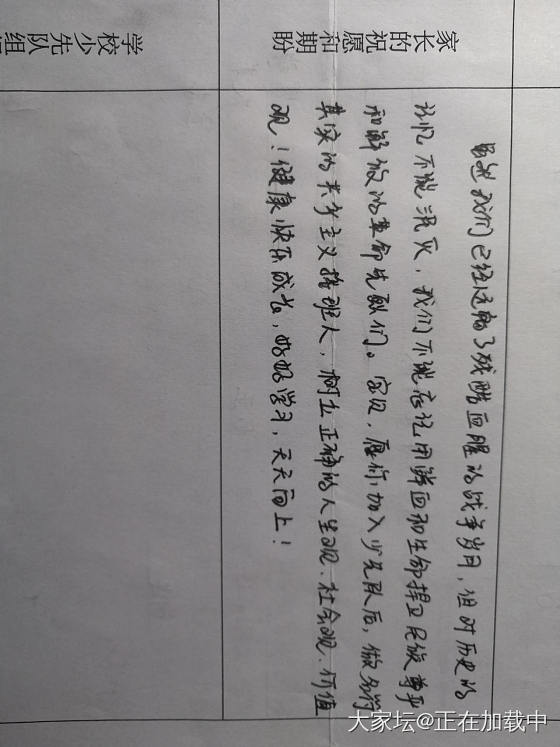 家长
的祝
愿和
期盼
虽然我们已经远离了残酷血腥的战争岁月，但对历史的
记忆不能泯灭，我们不能忘记用鲜血和生命捍卫民族尊严
和解放的革命先烈们。宝贝，愿你加入少先队后，做名符
其实的共产主义接班人，树立正确的人生观、社会观、价值
观！健康快乐成长，好好学习，天天向上！
学校少
先队组
大家坛@正在加载中